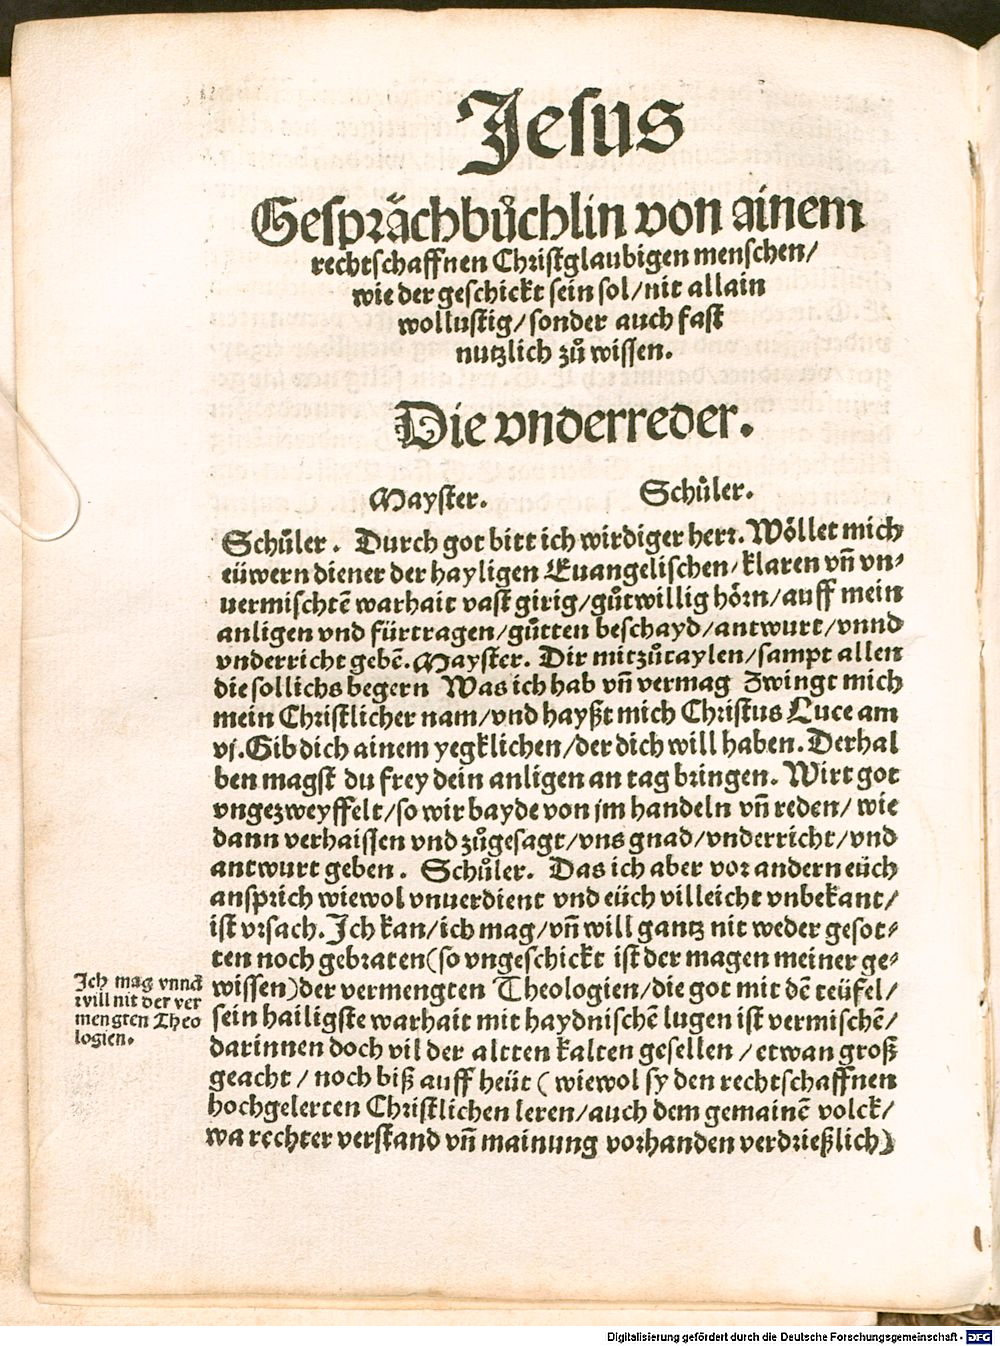 Jesus
Gesprächbuͤchlin von ainem
rechtschaffnen Christglaubigen menschen/
wie der geschickt sein sol/nit allain
wollustig/sonder auch fast
nutzlich zuͦ wissen.
Die vnderreder.
Mayster. Schuͤler.
Schuͤler. Durch got bitt ich wirdiger herr. Woͤllet mich
euͤwern diener der hayligen Euangelischen/klaren vñ vn⸗
uermischtẽ warhait vast girig/guͦtwillig hoͤrn/auff mein
anligen vnd fuͤrtragen/guͤtten beschayd/antwurt/vnnd
vnderricht gebẽ. Mayster. Dir mitzuͦtaylen/sampt allen
die sollichs begern Was ich hab vñ vermag Zwingt mich
mein Christlicher nam/vnd hayßt mich Christus Luce am
vj. Gib dich ainem yegklichen/der dich will haben. Derhal
ben magst du frey dein anligen an tag bringen. Wirt got
vngezweyffelt/so wir bayde von jm handeln vñ reden/wie
dann verhaissen vnd zuͦgesagt/vns gnad/vnderricht/vnd
antwurt geben. Schuͤler. Das ich aber vor andern euͤch
ansprich wiewol vnuerdient vnd euͤch villeicht vnbekant/
ist vrsach. Ich kan/ich mag/vñ will gantz nit weder gesot⸗
ten noch gebraten(so vngeschickt ist der magen meiner ge⸗
wissen)der vermengten Theologien/die got mit dẽ teuͤfel/
sein hailigste warhait mit haydnischẽ lugen ist vermischẽ/
darinnen doch vil der altten kalten gesellen/etwan groß
geacht/noch biß auff heuͤt(wiewol sy den rechtschaffnen
hochgelerten Christlichen leren/auch dem gemainẽ volck/
wa rechter verstand vñ mainung vorhanden verdrießlich)
Ich mag vnnd
will nit der ver
mengten Theo
logien.
Digitalisierung gefördert durch die Deutsche Forschungsgemeinschaft - DFG